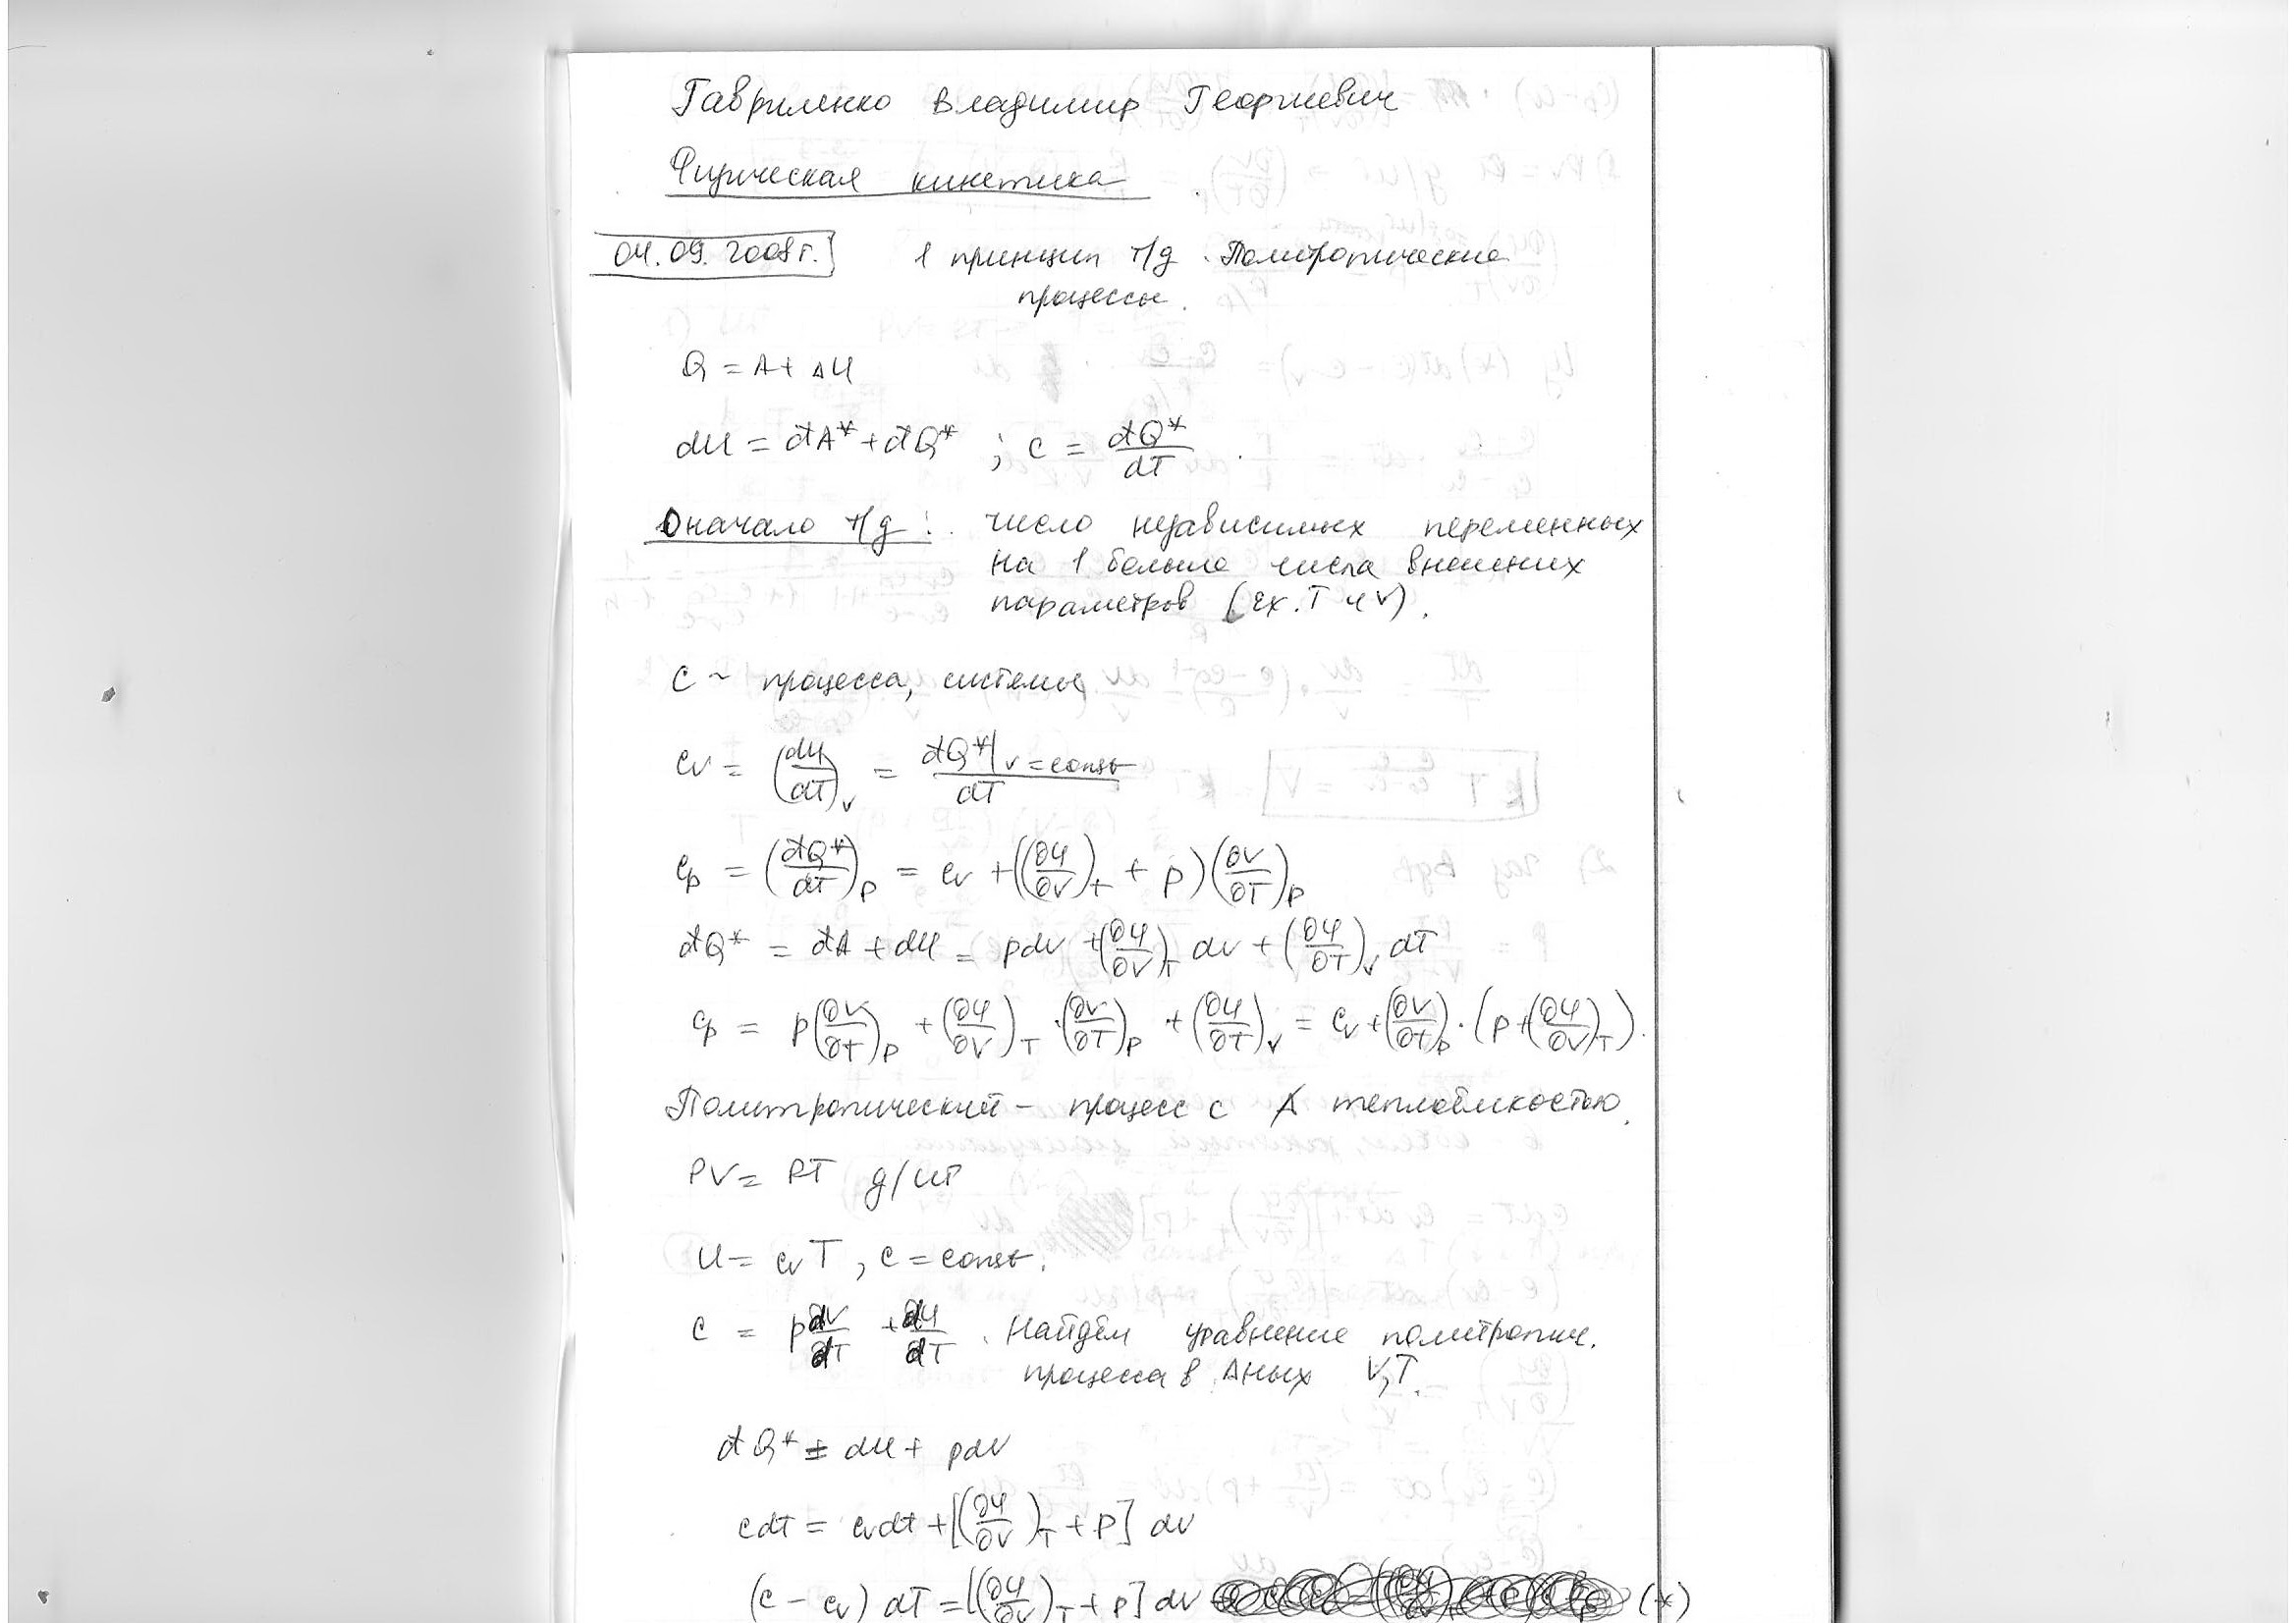 Гавриленко Владимир Георгиевич
Физическая кинетика
04.09.2008г.] 1 принцип т/д. Политропические
процессы.
Q = A + ΔU
dU = đA* + đQ* ; c = đQ*/dT .
0 начало т/д: число независимых переменных
на 1 больше числа внешних
параметров (Ex. T и V).
C ~ процесса, системы
c_V = (dU/dT)_V = đQ*|_V=const / dT
c_p = (đQ*/dT)_P = c_V + ((∂U/∂V)_T + p)(∂V/∂T)_P
đQ* = đA + dU = pdV + (∂U/∂V)_T dV + (∂U/∂T)_V dT
c_p = p(∂V/∂T)_P + (∂U/∂V)_T · (∂V/∂T)_P + (∂U/∂T)_V = c_V + (∂V/∂T)_P · (p + (∂U/∂V)_T).
Политропический – процесс с теплоёмкостью.
PV = RT д/ИГ
U = c_V T, c = const.
c = p dV/dT + dU/dT . Найдём уравнение политропич.
процесса в Δных V,T.
đQ* = dU + pdV
cdT = c_V dT + [(∂U/∂V)_T + p] dV
(c – c_V) dT = [(∂U/∂V)_T + p] dV (*)